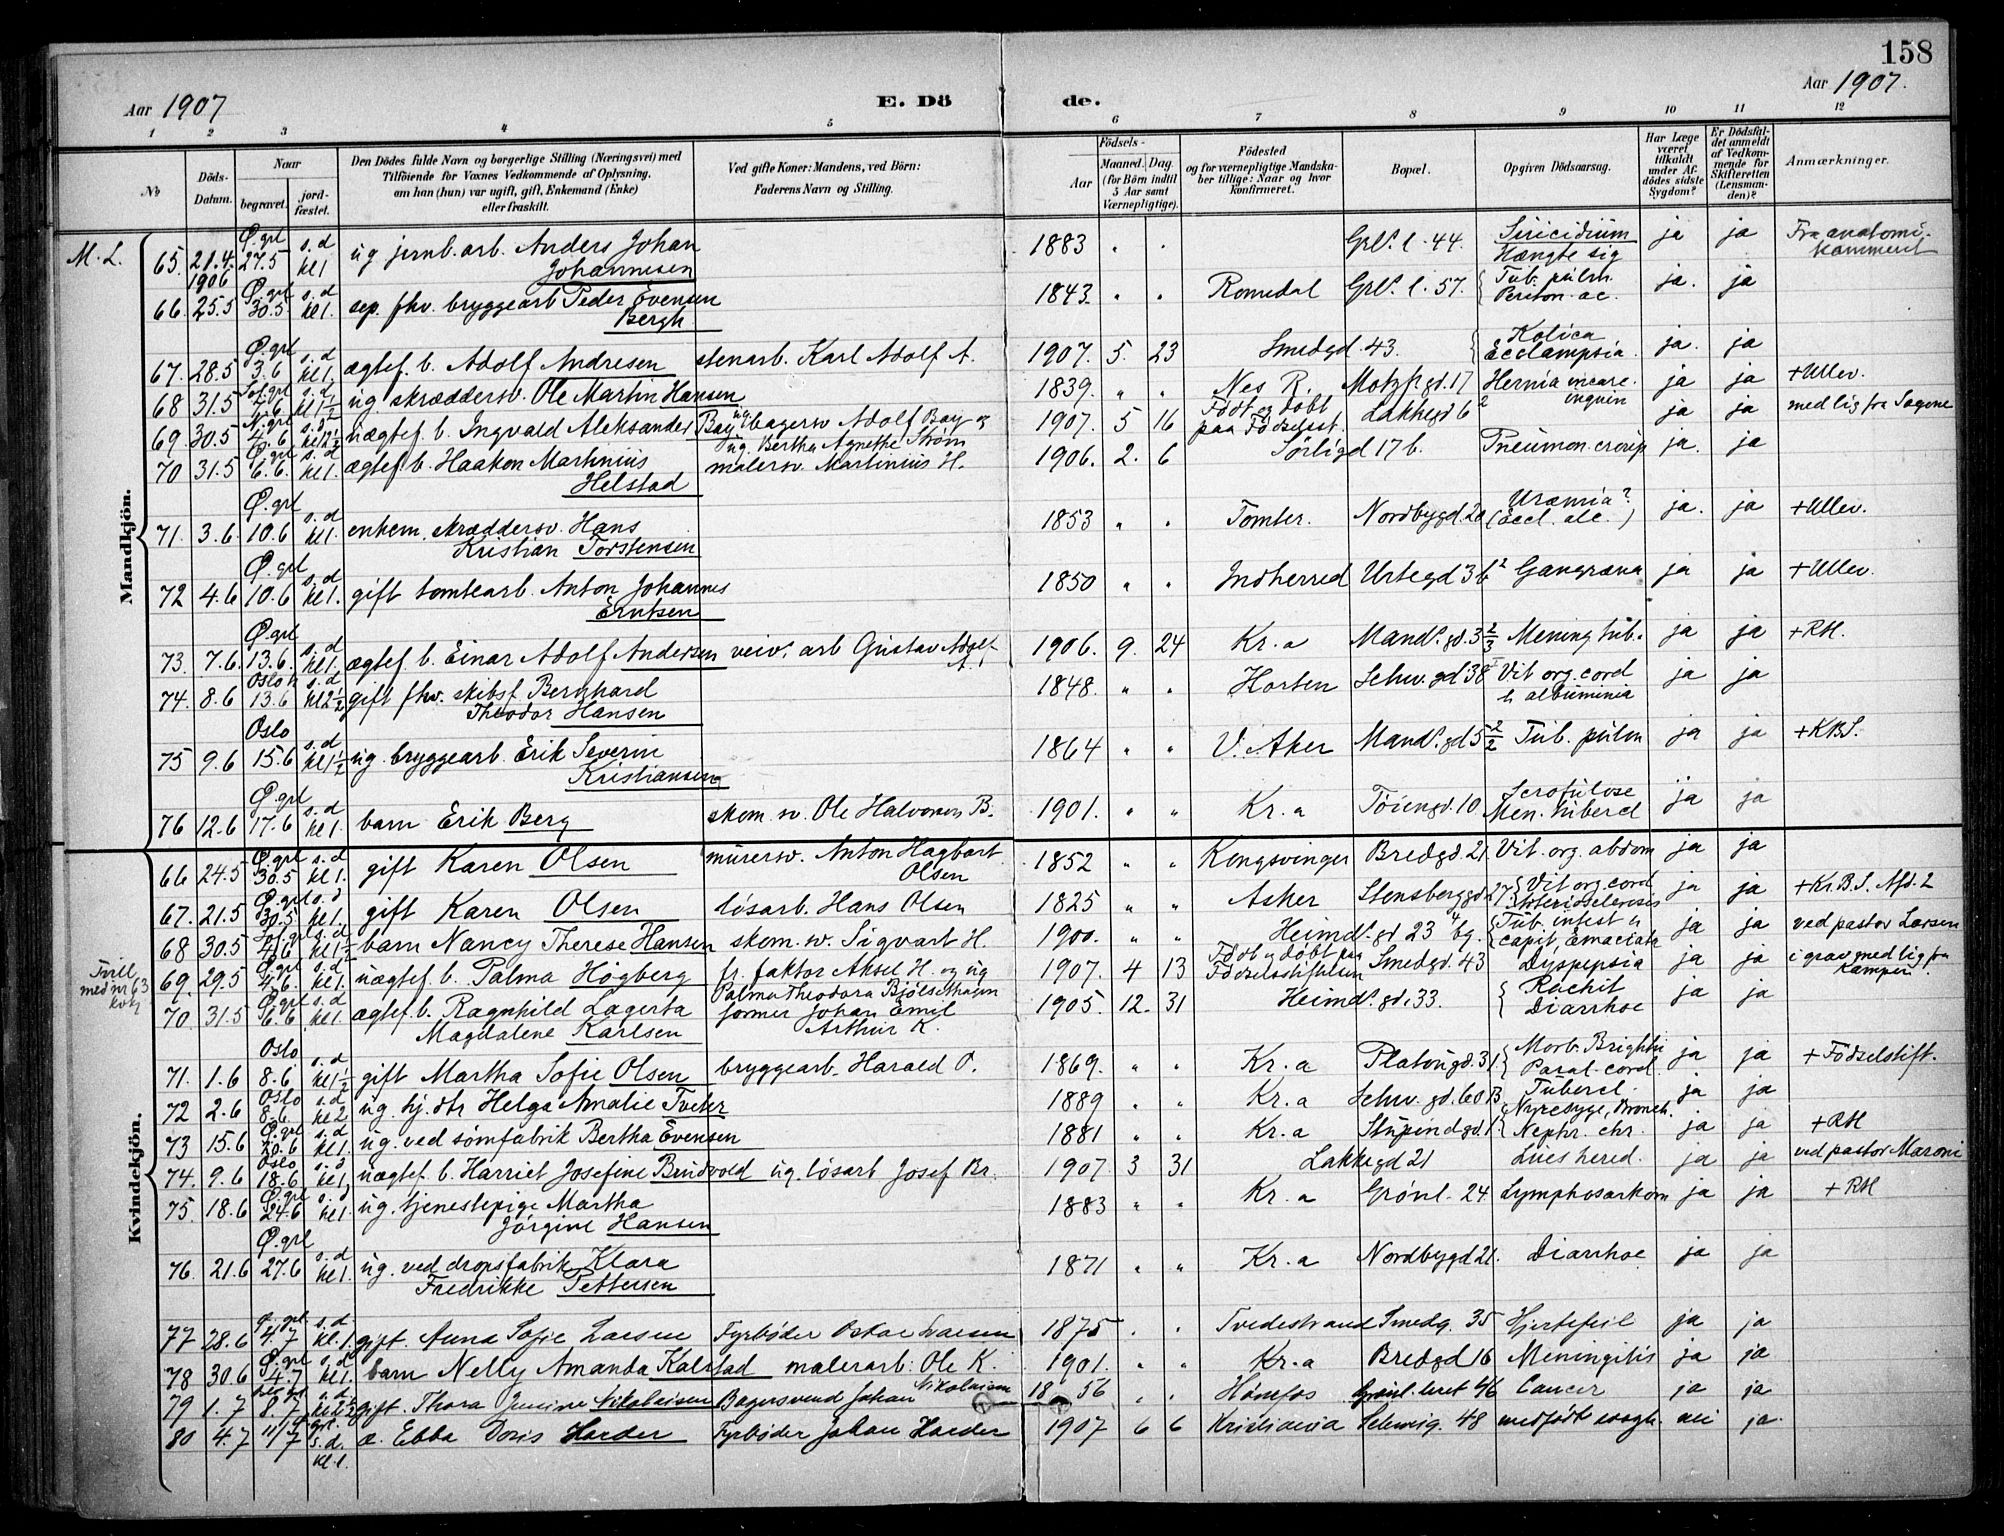 158
Aar 1907
E. Dö
de.
Aar 1907.
1 2 3 4 5 6 7 8 9 10 11 12
No
Döds-Datum.
Naar
begravet.
jord-fæstet.
Den Dödes fulde Navn og borgerlige Stilling (Næringsvei) med
Tilföiende for Voxnes Vedkommende af Oplysning,
om han (hun) var ugift, gift, Enkemand (Enke)
eller fraskilt.
Ved gifte Koner: Mandens, ved Börn:
Faderens Navn og Stilling.
Födsels-
Aar
Maaned. Dag.
(for Börn indtil
5 Aar samt
Værnepligtige).
Födested
og for værnepligtige Mandska-
ber tillige: Naar og hvor
Konfirmeret.
Bopæl.
Opgiven Dödsaarsag.
Har Læge
været
tilkaldt
under Af-
dödes sidste
Sygdom?
Er Dödsfal-
det anmeldt
af Vedkom-
mende for
Skifteretten
(Lensman-
den)?
Anmærkninger.
Mandkjön.
M. L. 65. 21.4. 1906 Ø. grl 27.5 s. d kl 1 ug jernb. arb. Anders Johan Johannesen 1883 " " Grl. l. 44. Suicidium Hængte sig ja ja Fra anatomikammeret
66. 25.5 Ø. grl 30.5 s. d kl 1. sep. fhv. bryggearb Peder Evensen Bergh 1843. " " Romedal Grl. l. 57. Tub. pulm. Periton. ac. ja. ja
67. 28.5 Ø. grl 3.6 s. d kl 1. ægtef. b. Adolf Andresen stenarb. Karl Adolf A. 1907. 5. 23 Smedgd. 43. Kolica Ecclampsia. ja. ja
68 31.5 4.6 s. d kl 1 1/2 ug skræddersv. Ole Martin Hansen 1839. " " Nes R. Motzf. gd. 17 Hernia incarc. inguin ja ja + Ullev.
69. 30.5 4.6 s. d kl 2 1/2 uægtef. b. Ingvald Aleksander Bay ug bagersv Adolf Bay og ug. Bertha Agnethe Strøm 1907. 5 16 Födt og döbt paa Födselsst. Lakkegd 6 2 ja ja med lig fra Sagene
70 31.5 Ø. grl 6.6. s. d kl 1. ægtef. b. Haakon Martinius Helstad malersv. Martinius H. 1906. 2. 6 Sörligd 17 b. Pneumon. croup ja. ja
71. 3.6 Ø. grl 10.6 s. d kl 1. enkem. skræddersv. Hans Kristian Torstensen 1853 " " Tomter. Nordbygd. 20 Uræmia? ja. ja + Ullev.
72 4.6 Ø. grl 10.6 s. d kl 1. gift tomtearb. Anton Johannes Erntsen 1850 " " Indherred Urtegd 36 2 Gangræna ja ja + Ullev.
73. 7.6 Ø. grl 13.6. s. d kl 1. ægtef. b. Einar Adolf Andersen veiv. arb Gustav Adolf A. 1906. 9. 24 Kr.a Mands. gd. 3 2/3 Mening tub. ja ja + RH.
74. 8.6 Oslo k 13.6 s. d kl 2 1/2 gift fhv. skibsf. Bernhard Theodor Hansen 1848. " " Horten Schw. gd 38 I Vit org. cord albuminia ja ja
75 9.6 Oslo 15.6 s. d kl 1 1/2 ug. bryggearb. Erik Severin Kristiansen 1864 " " V. Aker Mands. gd 5 2/2 Tub. pulm ja ja + KBS.
76 12.6 Ø. grl 17.6 s. d kl 1. barn Erik Berg skom. sv. Ole Halvorsen B. 1901. " " Kr.a Töiengd. 10 Scrofulose Men. tubercl ja ja
Kvindekjön.
66 24.5 Ø. grl 30.5 s. d kl 1. gift Karen Olsen murersv. Anton Hagbart Olsen 1852 " " Kongsvinger Bredgd. 21. Vit. org. abdom ja ja
67. 21.5 Ø. grl 30.5 s. d kl 1. gift Karen Olsen løsarb. Hans Olsen 1825 " " Asker Stensberggd. 27 Vit org. cord Arteriosclerosis ja ja + Kr. B. S. Afd. 2
68 30.5 4.6 s. d kl 1 1/2 barn Nancy Therese Hansen skom. sv. Sigvart H. 1900. " " Heimd. gd 23 4/bg. Tub. intest capit. Emaciatio ja ja ved pastor Larsen
Tvill. med nr 63 kvkj 69. 29.5 Ø. grl 4.6. s. d kl 1. uægtef. b. Palma Högberg fr. faktor Aksel H. og ug Palma Theodora Bjölsethagen 1907. 4 13 Födt og döbt paa Födselsstiftelsen Smedgd. 43 Dyspepsia ja ja i grav med lig fra Kampen
70 31.5 Ø. grl 6.6 s. d kl 1. ægtef b. Ragnhild Lagerta Magdalene Karlsen former Johan Emil Arthur K. 1905. 12. 31 Heimd. gd. 33. Rachit Diarrhoe ja ja
71. 1.6 Oslo 8.6 s. d kl 1 1/2 gift Martha Sofie Olsen bryggearb. Harald O. 1869. " " Kr.a Platougd. 31. Morb. Brightii Paral. cord. ja ja + Födselstift.
72 2.6 Oslo 8.6. s. d kl 2. ug. hj. dtr Helga Amalie Tveter 1889 " " Kr.a Schw. gd. 60 B Tubercl. ja ja
73 15.6 Ø. grl 20.6 s. d kl 1. ug. ved sømfabrik Bertha Evensen 1881 " " Kr.a Stupendgd. 1. Nyresyge, Bronch. Nephr. chr. ja ja + RH
74. 9.6 Oslo 18.6 s. d kl 1. uægtef b. Harriet Josefine Brudvold ug. løsarb Josef Br. 1907. 3 31 Lakkegd 21 Lues hered. ja ja ved pastor Maroni
75. 18.6 Ø. grl 24.6 s. d kl 1. ug. tjenestepige Martha Jörgine Hansen 1883 " " Kr.a Grönl. 24 Lymphosarkom ja ja + RH
76. 21.6 Ø. grl 27.6 s. d kl 1. ug. ved dropsfabrik Klara Fredrikke Pettersen 1871 " " Kr.a Nordbygd 21. Diarrhoe ja ja
77 28.6 Ø. grl 4.7 s. d. kl. 1. gift. Anna Sofie Larsen Fyrbøder Oskar Larsen 1875 " " Tvedestrand Smedg. 35 Hjertefeil ja ja
78 30.6 Ø. grl 4.7 s. d kl 1. barn Nelly Amanda Kalstad malerarb: Ole K. 1901. " " Kr.a Bredgd 16 Meningitis ja ja
79 1.7 8.7 s. d. kl 2 1/2 gift. Thora Nikolaisen Bagersvend Johan Nikolaisen 1856 " " Hönefos Grönl. leret 46 Cancer ja ja
80 4.7 11/7 s. d. kl. 1. æ. Ebba Doris Harder Fyrbøder Johan Harder 1907 6 6 Kristiania Schweig. 48 medfödt svagh. nei ja.